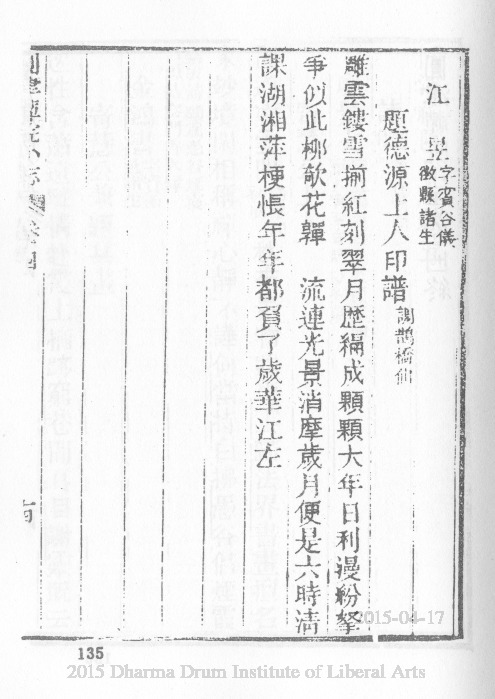 江 昱 字賓谷儀
徵縣諸生
題德源上人印譜 調鵲橋仙
雕雲鏤雪揃紅刻翠月歷編成顆顆大年日利謾粉拏
爭似此柳欹花嚲 流連光景消摩歲月便是六時清
課湖湘萍梗悵年年都負了歲華江左
135
2015-04-17
2015 Dharma Drum Institute of Liberal Arts